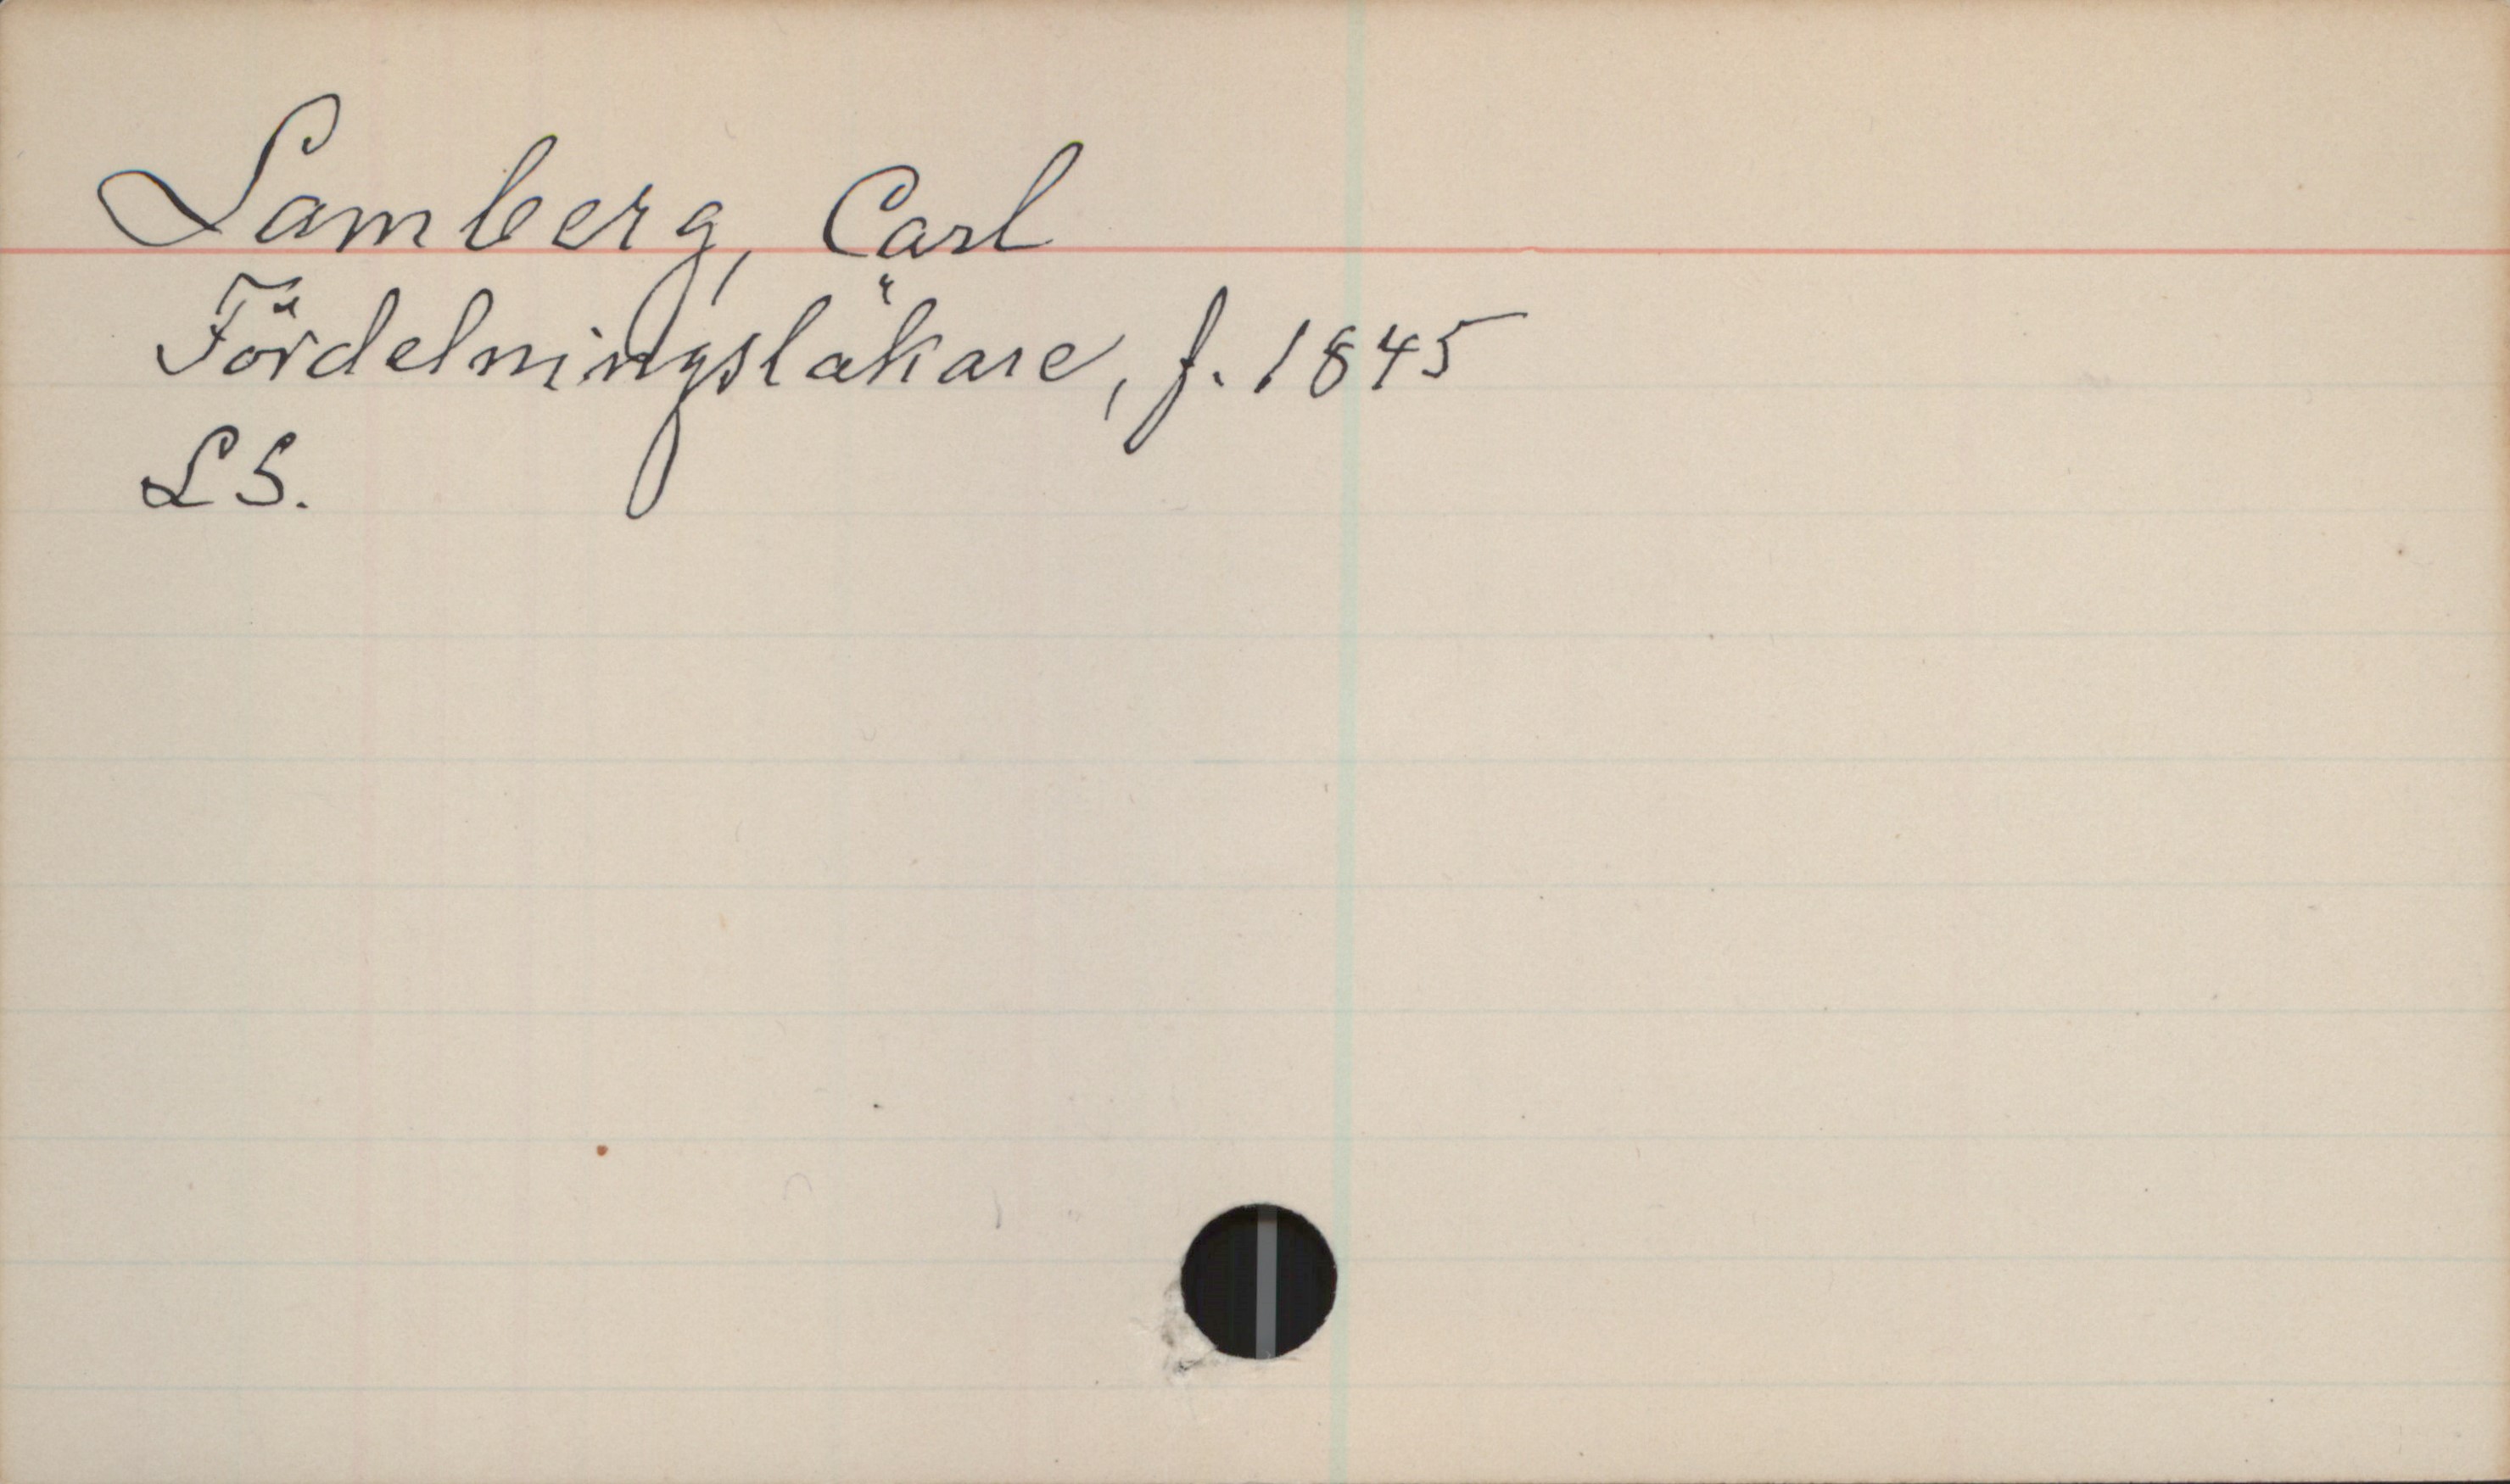 Lamberg, Carl
Fördelningsläkare, f. 1845
LS.